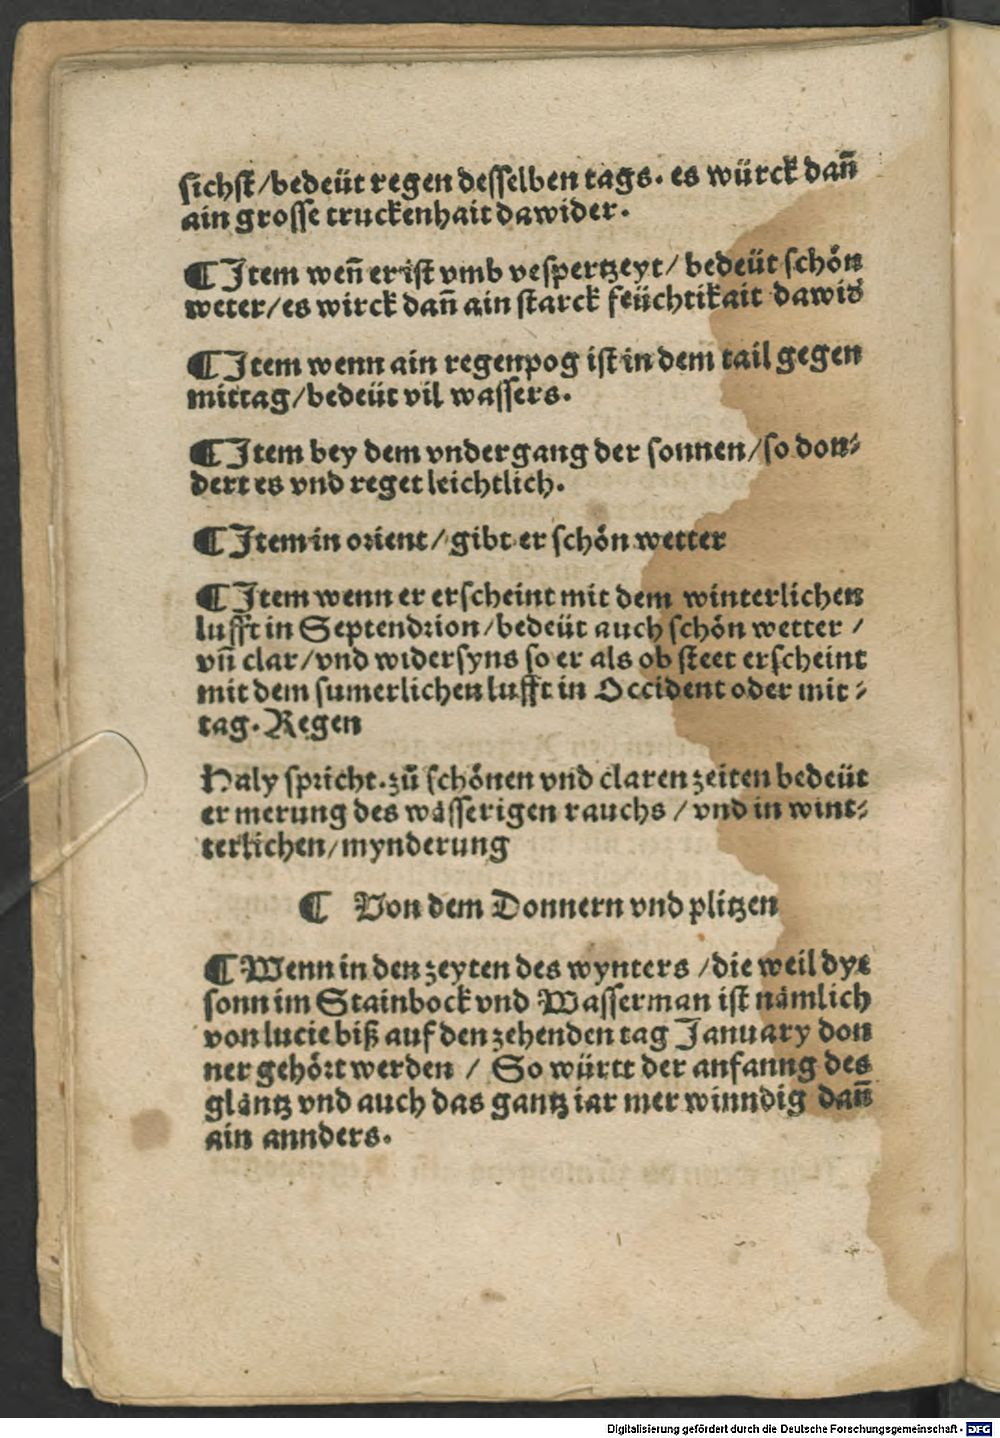 sichst/bedeüt regen desselben tags. es würck dañ
ain grosse truckenhait dawider.
¶ Item weñ er ist vmb vespertzeyt/ bedeüt schoͤn
weter/es wirck dañ ain starck feüchtikait dawid
¶ Item wenn ain regenpog ist in dem tail gegen
mittag/bedeüt vil wassers.
¶ Item bey dem vndergang der sonnen/so don⸗
dert es vnd reget leichtlich.
¶ Item in orient/gibt er schoͤn wetter
¶ Item wenn er erscheint mit dem winterlichen
lufft in Septendrion/bedeüt auch schoͤn wetter /
vñ clar/vnd widersyns so er als ob steet erscheint
mit dem sumerlichen lufft in Occident oder mit⸗
tag. Regen
Haly spricht. zuͦ schoͤnen vnd claren zeiten bedeüt
er merung des waͤsserigen rauchs / vnd in wint⸗
terlichen/mynderung
¶ Von dem Donnern vnd plitzen
¶ Wenn in den zeyten des wynters /die weil dye
sonn im Stainbock vnd Wasserman ist naͤmlich
von lucie biß auf den zehenden tag January don
ner gehoͤrt werden / So württ der anfanng des
glantz vnd auch das gantz iar mer winndig dañ
ain annders.
Digitalisierung gefördert durch die Deutsche Forschungsgemeinschaft - DFG